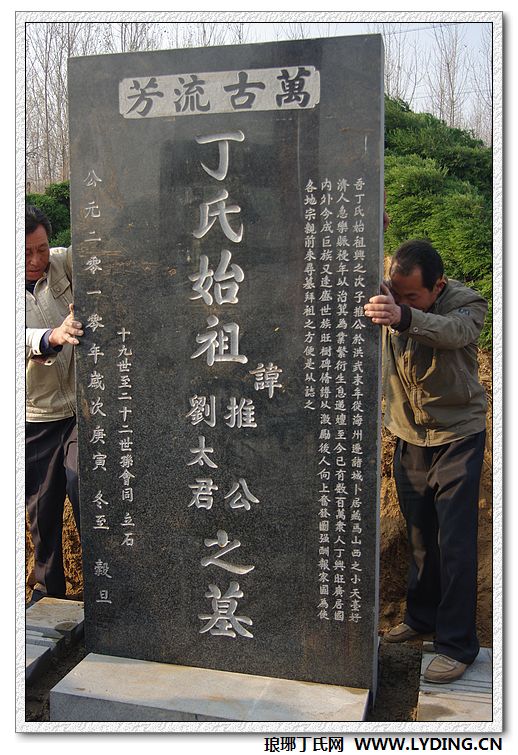 萬古流芳
吾丁氏始祖興之次子推公於洪武末年從海州遷諸城卜居藏馬山西之小天臺好
濟人急樂賑後年以治箕為業繁衍生息適壇至今已有数百萬衆人丁興旺廣居國
内外今成巨族又逢盛世族旺樹碑脩譜以激勵後人向上奋發圖强酬報家國為使
各地宗親前来尋墓拜祖之方便是以誌之
丁氏始祖
諱推公
劉太君
之墓
十九世至二十二世孫會同立石
公元二零一零年歲次庚寅冬至穀旦
琅琊丁氏网 WWW.LYDING.CN